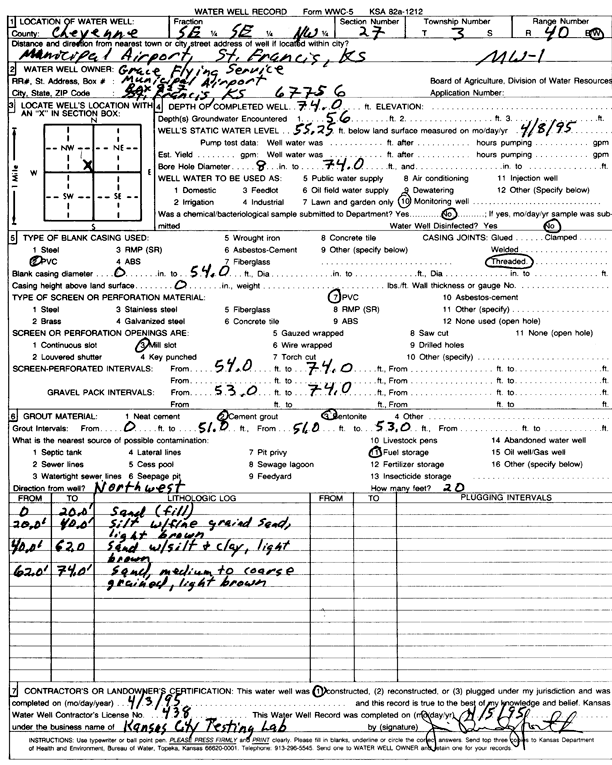 WATER WELL RECORD Form WWC-5 KSA 82a-1212
1 LOCATION OF WATER WELL: Fraction Section Number Township Number Range Number
County: Cheyenne SE ¼ SE ¼ NW ¼ 27 T 3 S R 40 E/W
Distance and direction from nearest town or city street address of well if located within city?
Municipal Airport, St. Francis, KS MW-1
2 WATER WELL OWNER: Grace Flying Service
RR#, St. Address, Box #: Municipal Airport Board of Agriculture, Division of Water Resources
Box 837
City, State, ZIP Code St. Francis, KS 67756 Application Number:
3 LOCATE WELL'S LOCATION WITH AN "X" IN SECTION BOX:
N
NW NE
X
W E
SW SE
S
1 Mile
4 DEPTH OF COMPLETED WELL 74.0 ft. ELEVATION:
Depth(s) Groundwater Encountered 1. 56 ft. 2. ft. 3. ft.
WELL'S STATIC WATER LEVEL 55.25 ft. below land surface measured on mo/day/yr 4/8/95
Pump test data: Well water was ft. after hours pumping gpm
Est. Yield gpm: Well water was ft. after hours pumping gpm
Bore Hole Diameter 8 in. to 74.0 ft., and in. to ft.
WELL WATER TO BE USED AS: 5 Public water supply 8 Air conditioning 11 Injection well
1 Domestic 3 Feedlot 6 Oil field water supply 9 Dewatering 12 Other (Specify below)
2 Irrigation 4 Industrial 7 Lawn and garden only 10 Monitoring well
Was a chemical/bacteriological sample submitted to Department? Yes No ; If yes, mo/day/yr sample was submitted Water Well Disinfected? Yes No
5 TYPE OF BLANK CASING USED: 5 Wrought iron 8 Concrete tile CASING JOINTS: Glued Clamped
1 Steel 3 RMP (SR) 6 Asbestos-Cement 9 Other (specify below) Welded
2 PVC 4 ABS 7 Fiberglass Threaded
Blank casing diameter 0 in. to 54.0 ft., Dia in. to ft., Dia in. to ft.
Casing height above land surface 0 in., weight lbs./ft. Wall thickness or gauge No.
TYPE OF SCREEN OR PERFORATION MATERIAL: 7 PVC 10 Asbestos-cement
1 Steel 3 Stainless steel 5 Fiberglass 8 RMP (SR) 11 Other (specify)
2 Brass 4 Galvanized steel 6 Concrete tile 9 ABS 12 None used (open hole)
SCREEN OR PERFORATION OPENINGS ARE: 5 Gauzed wrapped 8 Saw cut 11 None (open hole)
1 Continuous slot 3 Mill slot 6 Wire wrapped 9 Drilled holes
2 Louvered shutter 4 Key punched 7 Torch cut 10 Other (specify)
SCREEN-PERFORATED INTERVALS: From 54.0 ft. to 74.0 ft., From ft. to ft.
From ft. to ft., From ft. to ft.
GRAVEL PACK INTERVALS: From 53.0 ft. to 74.0 ft., From ft. to ft.
From ft. to ft., From ft. to ft.
6 GROUT MATERIAL: 1 Neat cement 2 Cement grout 3 Bentonite 4 Other
Grout Intervals: From 0 ft. to 51.0 ft., From 51.0 ft. to 53.0 ft., From ft. to ft.
What is the nearest source of possible contamination: 10 Livestock pens 14 Abandoned water well
1 Septic tank 4 Lateral lines 7 Pit privy 11 Fuel storage 15 Oil well/Gas well
2 Sewer lines 5 Cess pool 8 Sewage lagoon 12 Fertilizer storage 16 Other (specify below)
3 Watertight sewer lines 6 Seepage pit 9 Feedyard 13 Insecticide storage
Direction from well? Northwest How many feet? 20
FROM TO LITHOLOGIC LOG FROM TO PLUGGING INTERVALS
0 20.0' Sand (fill)
20.0' 40.0' Silt w/fine graind sand,
light brown
40.0' 62.0 Sand w/silt + clay, light
brown
62.0' 74.0' Sand, medium to coarse
grained, light brown
7 CONTRACTOR'S OR LANDOWNER'S CERTIFICATION: This water well was (1) constructed, (2) reconstructed, or (3) plugged under my jurisdiction and was
completed on (mo/day/year) 4/3/95 and this record is true to the best of my knowledge and belief. Kansas
Water Well Contractor's License No. 438 This Water Well Record was completed on (mo/day/yr) 4/5/95
under the business name of Kansas City Testing Lab by (signature)
INSTRUCTIONS: Use typewriter or ball point pen. PLEASE PRESS FIRMLY and PRINT clearly. Please fill in blanks, underline or circle the correct answers. Send top three copies to Kansas Department
of Health and Environment, Bureau of Water, Topeka, Kansas 66620-0001. Telephone: 913-296-5545. Send one to WATER WELL OWNER and retain one for your records.